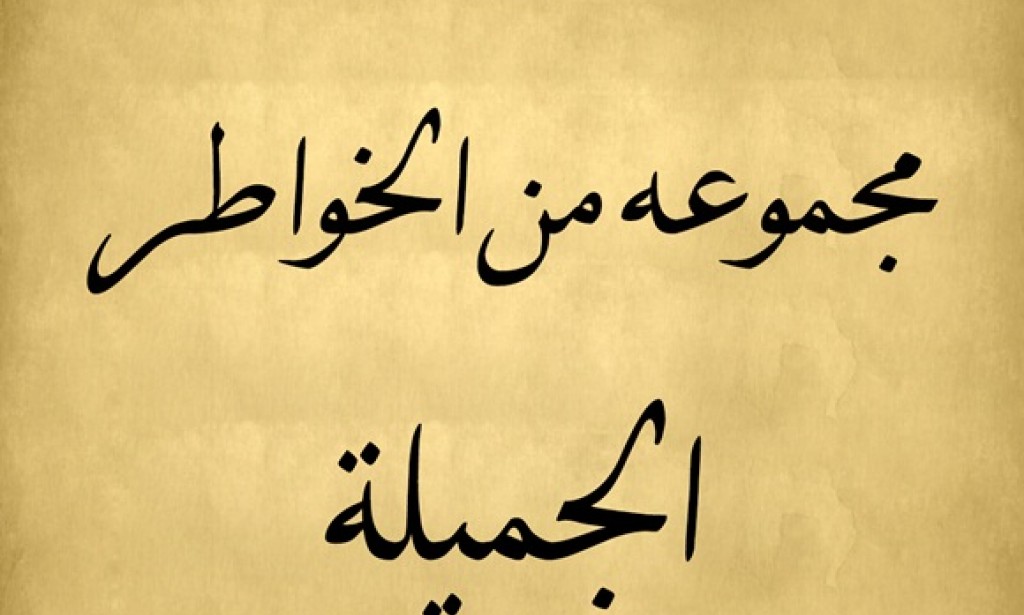 مجموعه من الخواطر
الجميلة